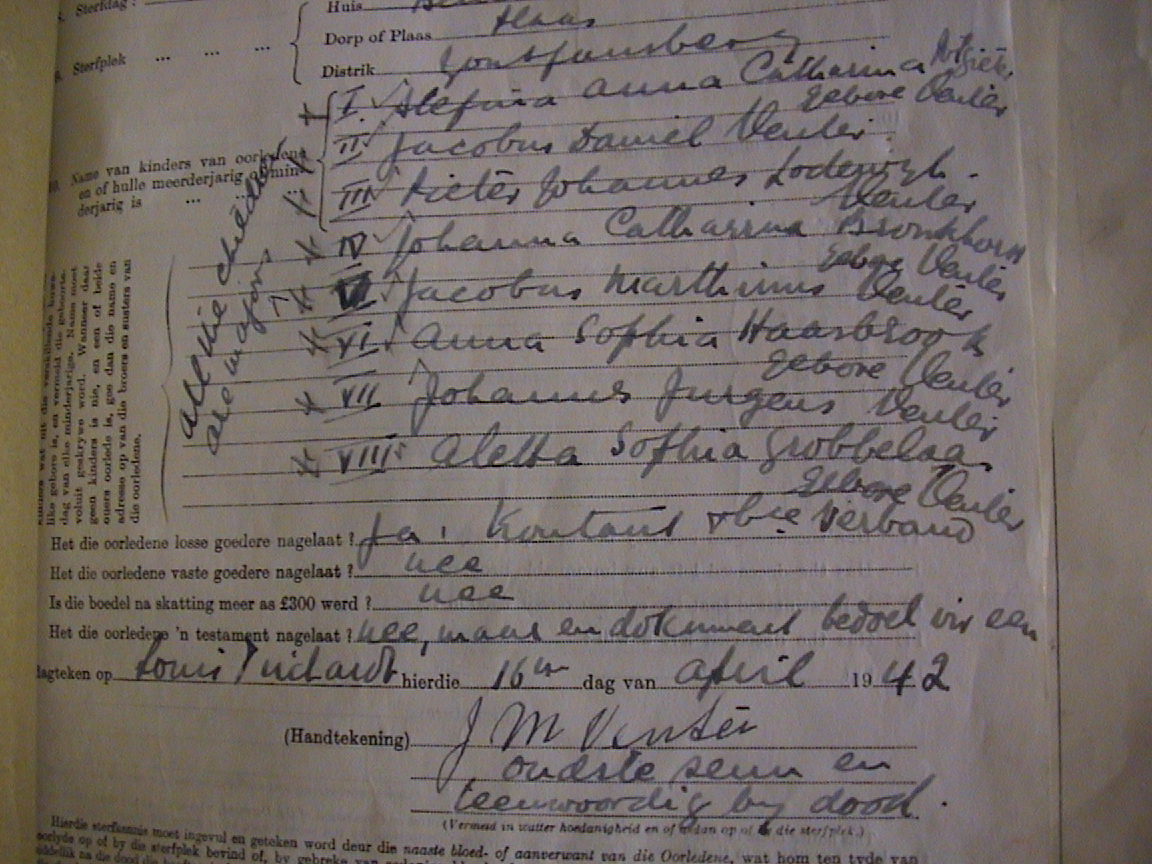 Sterfdag :
Huis
Dorp of Plaas Plaas
Sterfplek ... ... ...
Distrik Zoutpansberg
I. Stefina Anna Catharina Potgieter
gebore Venter
II Jacobus Daniel Venter.
10. Name van kinders van oorledene
en of hulle meerderjarig of min-
derjarig is ... ...
III Pieter Johannes Lodewyk
Venter
IV Johanna Catharina Bronkhorst
gebore Venter
V Jacobus Marthinus Venter
VI Anna Sophia Haasbroek
gebore Venter
VII Johannes Jurgens Venter
VIII Aletta Sophia Grobbelaar
gebore Venter
All the children
are majors
like gebore is, en vermeld die geboorte-
dag van elke minderjarige. Name moet
voluit geskrywe word. Wanneer daar
geen kinders is nie, en een of beide
ouers oorlede is, gee dan die name en
adresse op van die broers en susters van
die oorledene.
Het die oorledene losse goedere nagelaat ? Ja. Kontant & Verband
Het die oorledene vaste goedere nagelaat ? nee
Is die boedel na skatting meer as £300 werd ? nee
Het die oorledene 'n testament nagelaat ? nee, maar en dokument bedoel vir een
Louis Trichardt hierdie 16de dag van April 1942
(Handtekening) J M Venter
oudste seun en
teenwoordig by dood.
(Vermeld in watter hoedanigheid en of die sterfplek.)
Hierdie sterfkennis moet ingevul en geteken word deur die naaste bloed- of aanverwant van die Oorledene, wat hom ten tyde van
op of by die sterfplek bevind of, by gebreke van